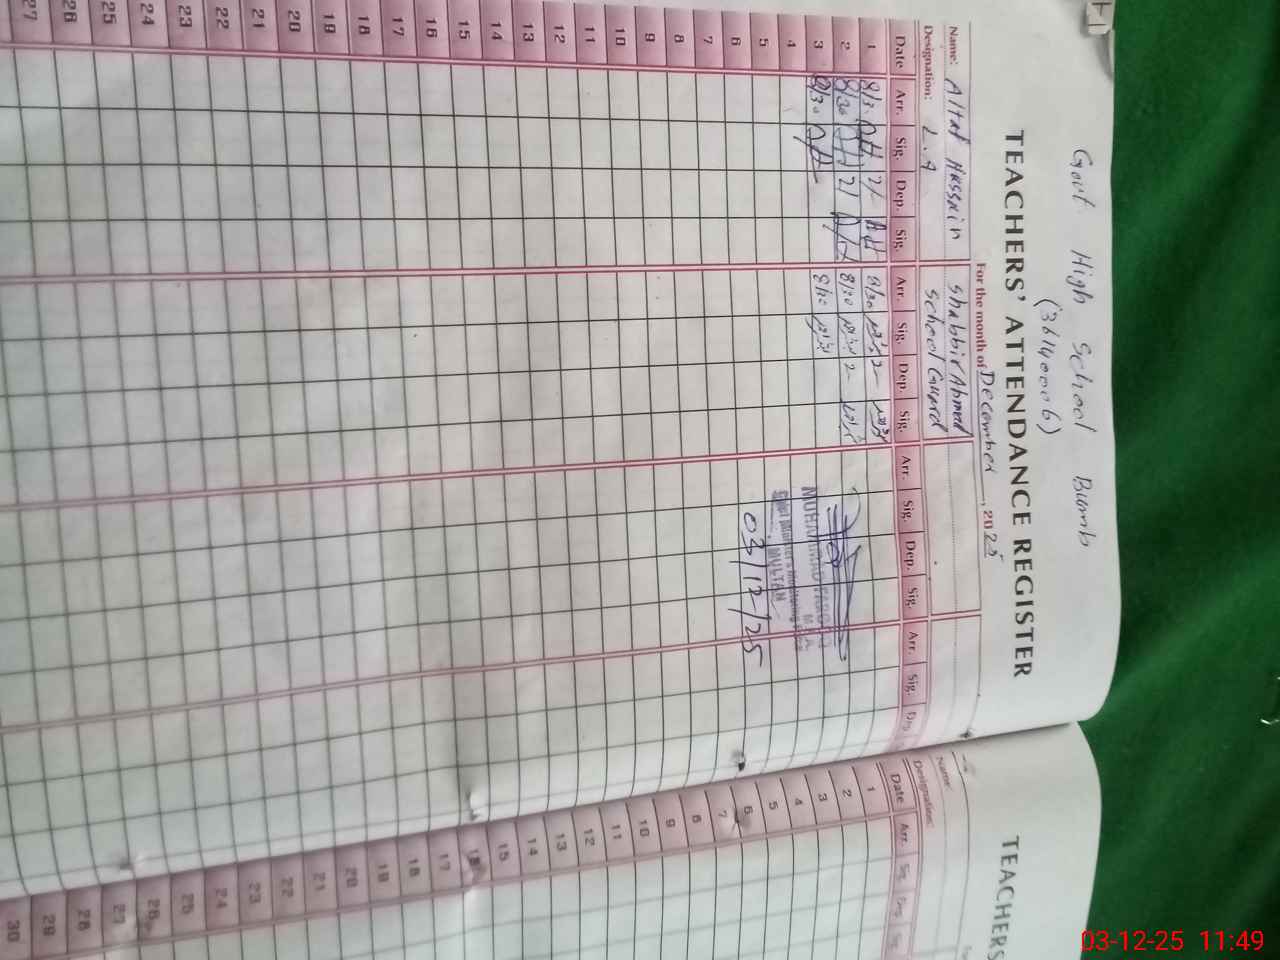 Govt High School Bumb
(36140006)
TEACHERS' ATTENDANCE REGISTER
For the month of December, 2025
Name: Altaf Hussain Shabbir Ahmad
Designation: L.A School Guard
Date Arr. Sig. Dep. Sig. Arr. Sig. Dep. Sig. Arr. Sig. Dep. Sig. Arr. Sig. Dep.
1 8/30 AH 2/- AH 8/30 2-
2 8/30 AH 2/ AH 8/30 2-
3 8/30 AH 8/30
4
5
6
7
8
9
10
11
12
13
14
15
16
17
18
19
20
21
22
23
24
25
26
27
MUHAMMAD
MULTAN
03/12/25
TEACHERS
Name
Designation:
Date Arr. Sig. Dep. Sig.
1
2
3
4
5
6
7
8
9
10
11
12
13
14
15
16
17
18
19
20
21
22
23
24
25
26
27
28
29
30
03-12-25 11:49